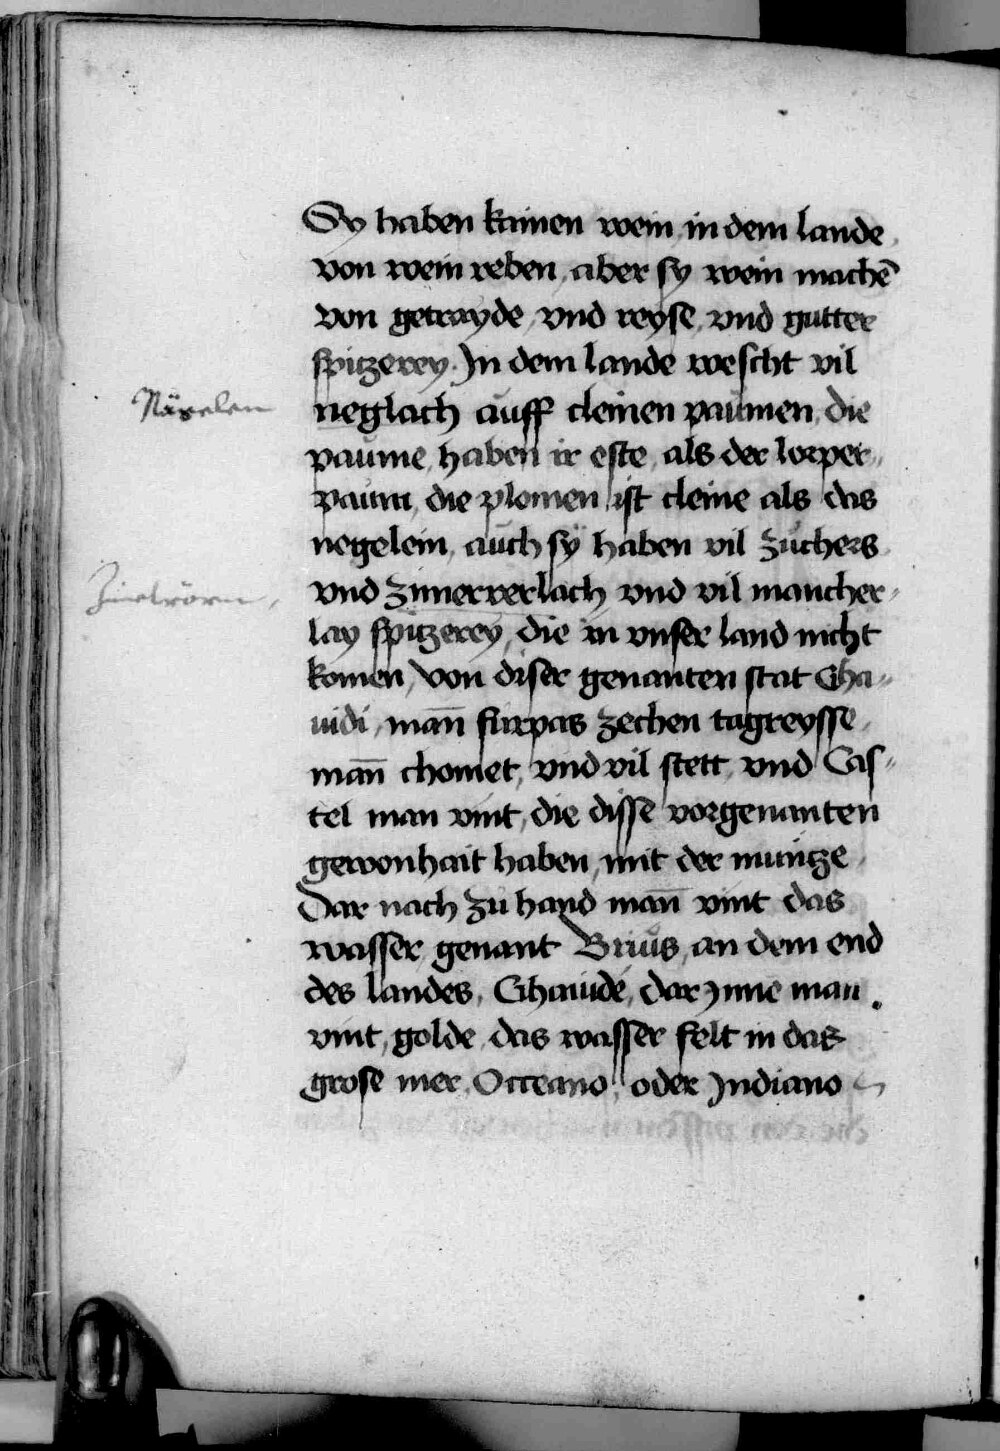 Sy haben kainen wein in dem lande
von wein reben, aber sy wein machē
von getrayde vnd reyse, vnd gutter
spitzerey. In dem lande wescht vil
Nägelen
neglach auff cleinen paumen, die
paume, haben ir este, als der lorper„
paum, die plomen ist cleine als das
negelein, auch sy haben vil zuchers
vnd zimerrerlach vnd vil mancher„
lay spitzerey, die in vnser land nicht
komen, von diser genanten stat Gha„
uidi, man̄ furpas zechen tagreysse,
man̄ chomet, vnd vil stett, vnd Cas„
tel man vint, die disse vorgenanten
gewonhait haben, mit der muntze
Dar nach zu hand man̄ vint das
wasser, genant Brius, an dem end
des landes, Ghaiude, dar Jnne man
vint, golde, das wasser felt in das
grose mer, Occeano, oder Jndiano